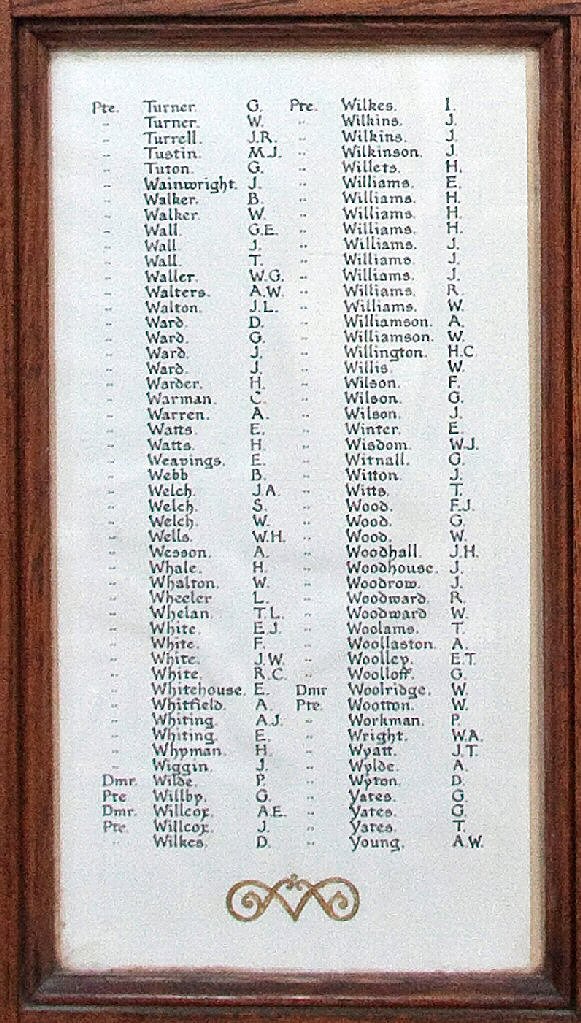 Pte. Turner. G. Pte. Wilkes. I.
" Turner. W. " Wilkins. J.
" Turrell. J.R. " Wilkins. J.
" Tustin. M.J. " Wilkinson. J.
" Tuton. G. " Willets. H.
" Wainwright. J. " Williams. E.
" Walker. B. " Williams. H.
" Walker. W. " Williams. H.
" Wall. G.E. " Williams. H.
" Wall. J. " Williams. J.
" Wall. T. " Williams. J.
" Waller. W.G. " Williams. J.
" Walters. A.W. " Williams. R.
" Walton. J.L. " Williams. W.
" Ward. D. " Williamson. A.
" Ward. G. " Williamson. W.
" Ward. J. " Willington. H.C.
" Ward. J. " Willis. W.
" Warder. H. " Wilson. F.
" Warman. C. " Wilson. G.
" Warren. A. " Wilson. J.
" Watts. E. " Winter. E.
" Watts. H. " Wisdom. W.J.
" Weavings. E. " Witnall. G.
" Webb B. " Witton. J.
" Welch. J.A. " Witts. T.
" Welch. S. " Wood. F.J.
" Welch. W. " Wood. G.
" Wells. W.H. " Wood. W.
" Wesson. A. " Woodhall. J.H.
" Whale. H. " Woodhouse. J.
" Whalton. W. " Woodrow. J.
" Wheeler L. " Woodward. R.
" Whelan. T.L. " Woodward W.
" White. E.J. " Woolams. T.
" White. F. " Woollaston. A.
" White. J.W. " Woolley. E.T.
" White. R.C. " Woolloff. G.
" Whitehouse. E. Dmr Woolridge. W.
" Whitfield. A. Pte. Wootton. W.
" Whiting. A.J. " Workman. P.
" Whiting. E. " Wright. W.A.
" Whyman. H. " Wyatt. J.T.
" Wiggin. J. " Wylde. A.
Dmr. Wilde. P. " Wyton. D.
Pte Willby. G. " Yates. G.
Dmr. Willcox. A.E. " Yates. G.
Pte. Willcox. J. " Yates. T.
" Wilkes. D. " Young. A.W.